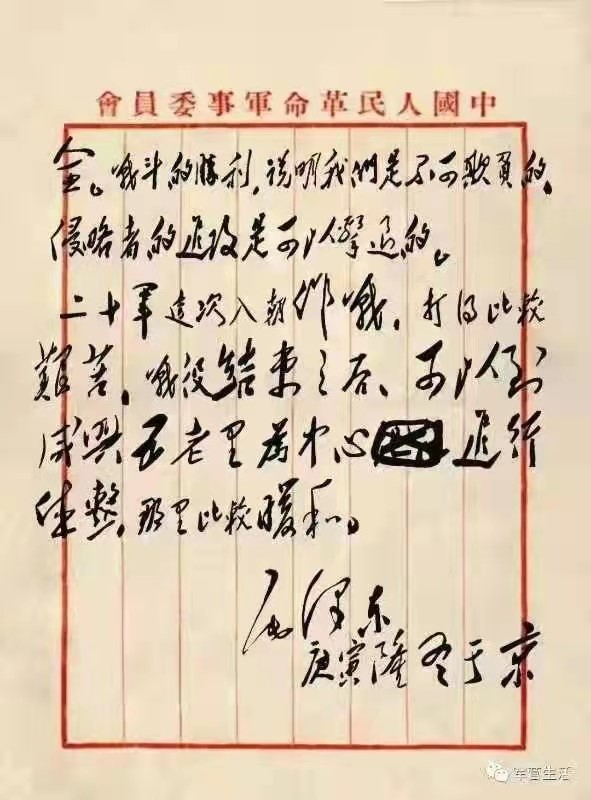 中國人民革命軍事委員會
全。战斗的勝利,说明我們是不可欺負的,
侵略者的進攻是可以擊退的。
二十軍這次入朝作战,打得比較
艱苦,战役結束之后、可以到
咸興五老里為中心進行
休整,那里比較暖和。
毛澤东
庚寅隆冬于京
军营生活